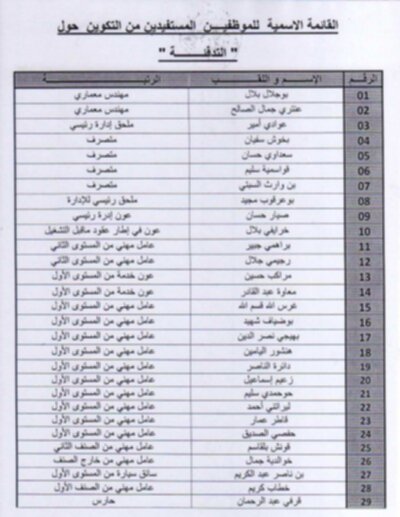 القائمة الاسمية للموظفين المستفيدين من التكوين حول
" التدفئة "
الرقم الإسم و اللقب الرتبة
01 بوجلال بلال مهندس معماري
02 عنتري جمال الصالح مهندس معماري
03 عوادي أمير ملحق إدارة رئيسي
04 بخوش سفيان متصرف
05 سعداوي حسان متصرف
06 قواسمية سليم متصرف
07 بن وارث السبتي متصرف
08 بوعرقوب مجيد ملحق رئيسي للإدارة
09 صيار حسان عون إدرة رئيسي
10 خرايفي بلال عون في إطار عقود ماقبل التشغيل
11 براهمي جبير عامل مهني من المستوى الثاني
12 رحيمي جلال عامل مهني من المستوى الثاني
13 مراكب حسين عون خدمة من المستوى الأول
14 معاوة عبد القادر عون خدمة من المستوى الأول
15 غرس الله قسم الله عامل مهني من المستوى الأول
16 بوضياف شهيد عامل مهني من المستوى الأول
17 يهيجي نصر الدين عامل مهني من المستوى الأول
18 هنشور اليامين عامل مهني من المستوى الأول
19 دائرة الناصر عامل مهني من المستوى الأول
20 زعيم إسماعيل عامل مهني من المستوى الأول
21 حوحمدي سليم عامل مهني من المستوى الأول
22 ليراتني أحمد عامل مهني من المستوى الأول
23 قاطر عمار عامل مهني من المستوى الأول
24 حفصي الصديق عامل مهني من المستوى الأول
25 قونش بلقاسم عامل مهني من الصنف الثاني
26 خوالدية جمال عامل مهني من خارج الصنف
27 بن ناصر عبد الكريم سائق سيارة من المستوى الأول
28 خطاب كريم عامل مهني من الصنف الأول
29 قرفي عبد الرحمان حارس